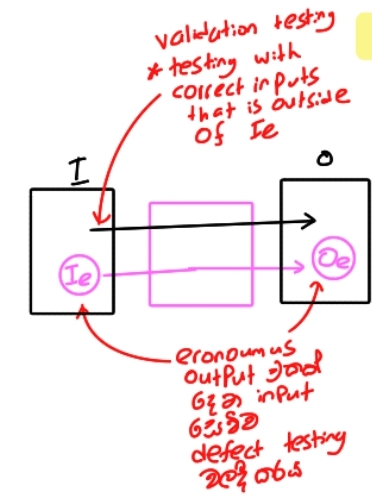 validation testing
* testing with
correct inputs
that is outside
Of Ie
I
O
Ie
Oe
eronoumus
output
input
defect testing